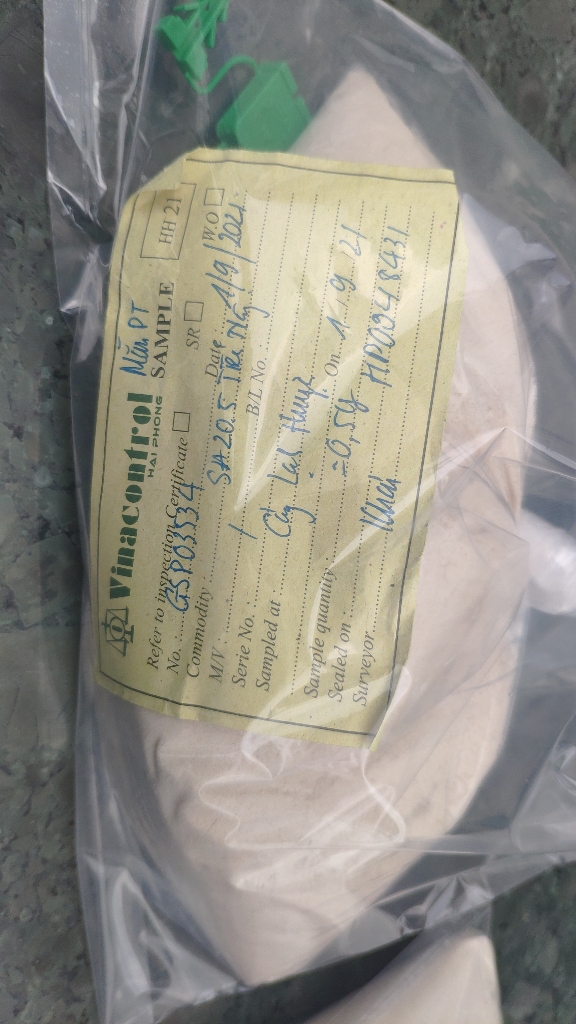 Vinacontrol
HAI PHONG
Mẫu PT
SAMPLE
HH 21
Refer to inspection Certificate
SR
W.O
No. GSP03534
Date 1/9/2021
Commodity SA 20.5
M/V /
Serie No.
B/L No.
Sampled at Cảng
Sample quantity
Sealed on On 1.9.21
Surveyor Khải HP09418431